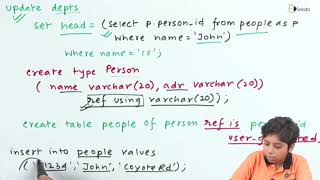 Ekeeda
update depts
set head = (select p.person_id from people as p
where name = 'John')
where name = 'CS';
create type Person
(name varchar(20), adr varchar(20))
ref using varchar(20));
create table people of person ref is
insert into people values
'John', 'Coyote Rd');